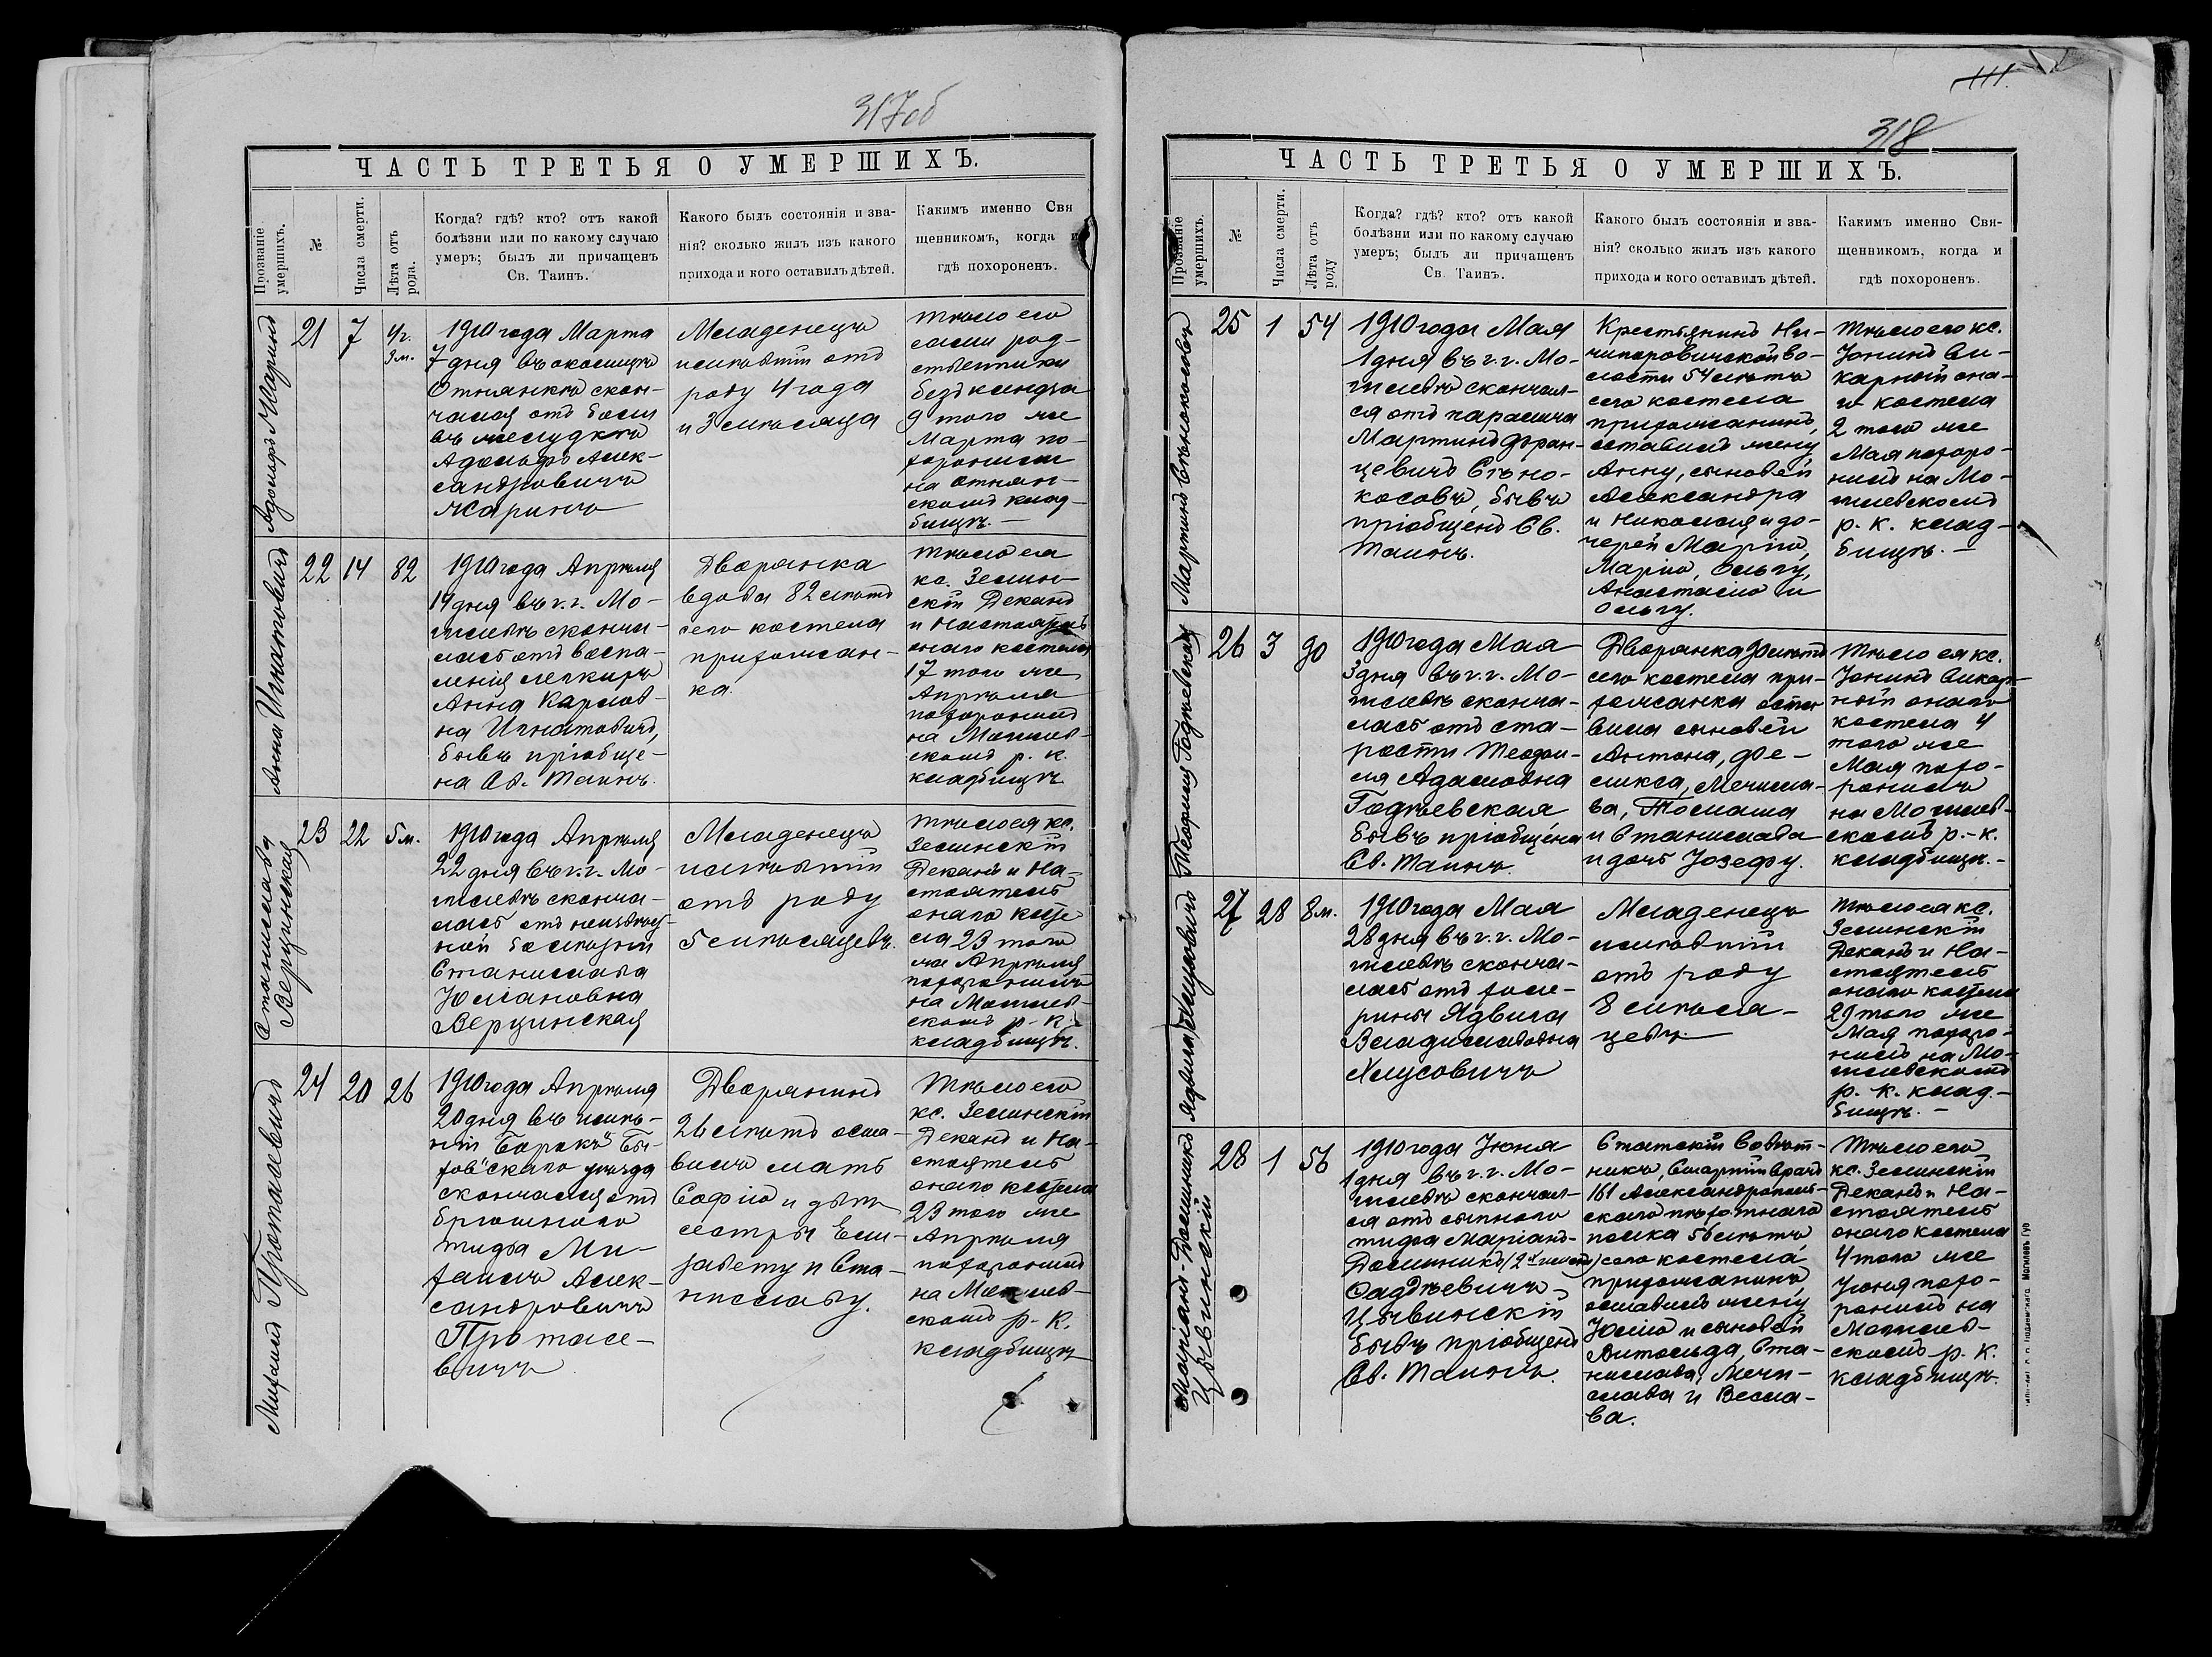 317 об
ЧАСТЬ ТРЕТЬЯ О УМЕРШИХЪ.
Прозваніе умершихъ.
№
Числа смерти.
Лѣта отъ рода.
Когда? гдѣ? кто? отъ какой
болѣзни или по какому случаю
умеръ; былъ ли причащенъ
Св. Таинъ.
Какого былъ состоянія и зва-
нія? сколько жилъ изъ какого
прихода и кого оставилъ дѣтей.
Каким​ъ именно Свя
щенникомъ, когда и
гдѣ похороненъ.
Адольфъ Жаринъ
21
7
4 г.
3 м.
1910 года Марта
7 дня въ околицѣ
Отнянкѣ скон-
чался отъ боли
въ желудкѣ
Адольфъ Алек-
сандровичъ
Жаринъ
Младенецъ
имѣвшій отъ
роду 4 года
и 3 мѣсяца
Тѣло его
сами род-
ственники
безъ ксендза
9 того же
Марта по-
хоронили
на Отнян-
скомъ клад-
бищѣ. —
Анна Игнатовичъ
22
14
82
1910 года Апрѣля
14 дня въ г. г. Мо-
гилевѣ сконча-
лась отъ воспа-
ленія легкихъ
Анна Карлов-
на Игнатовичъ,
бывъ пріобще-
на Св. Таинъ.
Дворянка
вдова 82 лѣтъ
сего костела
прихожан-
ка.
Тѣло ея
кс. Землин-
скій Деканъ
и Настоятель
онаго костела
17 того же
Апрѣля
похоронилъ
на Могилев-
скомъ р. к.
кладбищѣ
Станислава
Верцинская
23
22
5 м.
1910 года Апрѣля
22 дня въ г. г. Мо-
гилевѣ сконча-
лась отъ неизвѣст-
ной болѣзни
Станислава
Юліановна
Верцинская
Младенецъ
имѣвшій
отъ роду
5 мѣсяцевъ.
Тѣло ея кс.
Землинскій
Деканъ и На-
стоятель
онаго косте
ла 23 того
же Апрѣля
похоронилъ
на Могилев-
скомъ р.-к.
кладбищѣ.
Михаилъ Протасевичъ
24
20
26
1910 года Апрѣля
20 дня въ имѣ-
ніи "Боракъ" Бы-
ховскаго уѣзда
скончался отъ
брюшного
тифа Ми-
хаилъ Алек-
сандровичъ
Протасе-
вичъ
Дворянинъ
26 лѣтъ оста-
вилъ мать
Софію и двѣ
сестры Ели-
завету и Ста-
ниславу.
Тѣло его
кс. Землинскій
Деканъ и На-
стоятель
онаго костела
23 того же
Апрѣля
похоронилъ
на Могилев-
скомъ р.-к.
кладбищѣ
111.
318
ЧАСТЬ ТРЕТЬЯ О УМЕРШИХЪ.
Прозваніе умершихъ.
№
Числа смерти.
Лѣта отъ роду
Когда? гдѣ? кто? отъ какой
болѣзни или по какому случаю
умеръ; былъ ли причащенъ
Св. Таинъ.
Какого былъ состоянія и зва-
нія? сколько жилъ изъ какого
прихода и кого оставилъ дѣтей.
Какимъ именно Свя-
щенникомъ, когда и
гдѣ похороненъ.
Мартинъ Сѣнокосовъ
25
1
54
1910 года Мая
1 дня въ г. г. Мо-
гилевѣ скончал-
ся отъ паралича
Мартинъ Фран-
цевичъ Сѣно-
косовъ, бывъ
пріобщенъ Св.
Таинъ.
Крестьянинъ Ни-
чипоровичской во-
лости 54 лѣтъ
сего костела
прихожанинъ,
оставилъ жену
Анну, сыновей
Александра
и Николая и до-
черей Марію,
Марію, Ольгу,
Анастасію и
Ольгу.
Тѣло его кс.
Іонинъ Ви-
карный она-
го костела
2 того же
Мая похоро-
нилъ на Мо-
гилевскомъ
р. к. клад-
бищѣ. —
Теофилія Годлевская
26
3
90
1910 года Мая
3 дня въ г. г. Мо-
гилевѣ сконча-
лась отъ ста-
рости Теофи-
лія Адамовна
Годлевская,
бывъ пріобщена
Св. Таинъ.
Дворянка 90 лѣтъ
сего костела при-
хожанка оста-
вила сыновей
Антона, Фе-
ликса, Мечисла-
ва, Томаша
и Станислава
и дочь Іозефу.
Тѣло ея кс.
Іонинъ Викар-
ный онаго
костела 4
того же
Мая похо-
ронилъ
на Могилев-
скомъ р.-к.
кладбищѣ. -
Ядвига Хлусовичъ
27
28
8 м.
1910 года Мая
28 дня въ г. г. Мо-
гилевѣ сконча-
лась отъ холе-
рины Ядвига
Владиславовна
Хлусовичъ
Младенецъ
имѣвшій
отъ роду
8 мѣся-
цевъ.
Тѣло ея кс.
Землинскій
Деканъ и На-
стоятель
онаго костела
29 того же
Мая похоро-
нилъ на Мо-
гилевскомъ
р. к. клад-
бищѣ. —
Маріанъ-Доминикъ
Цывинскій
28
1
56
1910 года Іюня
1 дня въ г. г. Мо-
гилевѣ скончал-
ся отъ сыпного
тифа Маріанъ-
Доминикъ (2 имени)
Фаддѣевичъ
Цывинскій
бывъ пріобщенъ
Св. Таинъ.
Статскій Совѣт-
никъ, Старшій врачъ
161 Александрополь-
скаго пѣхотнаго
полка 56 лѣтъ
сего костела
прихожанинъ,
оставилъ жену
Юлію и сыновей
Витольда, Ста-
нислава, Мечи-
слава и Весла-
ва.
Тѣло его
кс. Землинскій
Деканъ и На-
стоятель
онаго костела
4 того же
Іюня похо-
ронилъ на
Могилев-
скомъ р. к.
кладбищѣ.